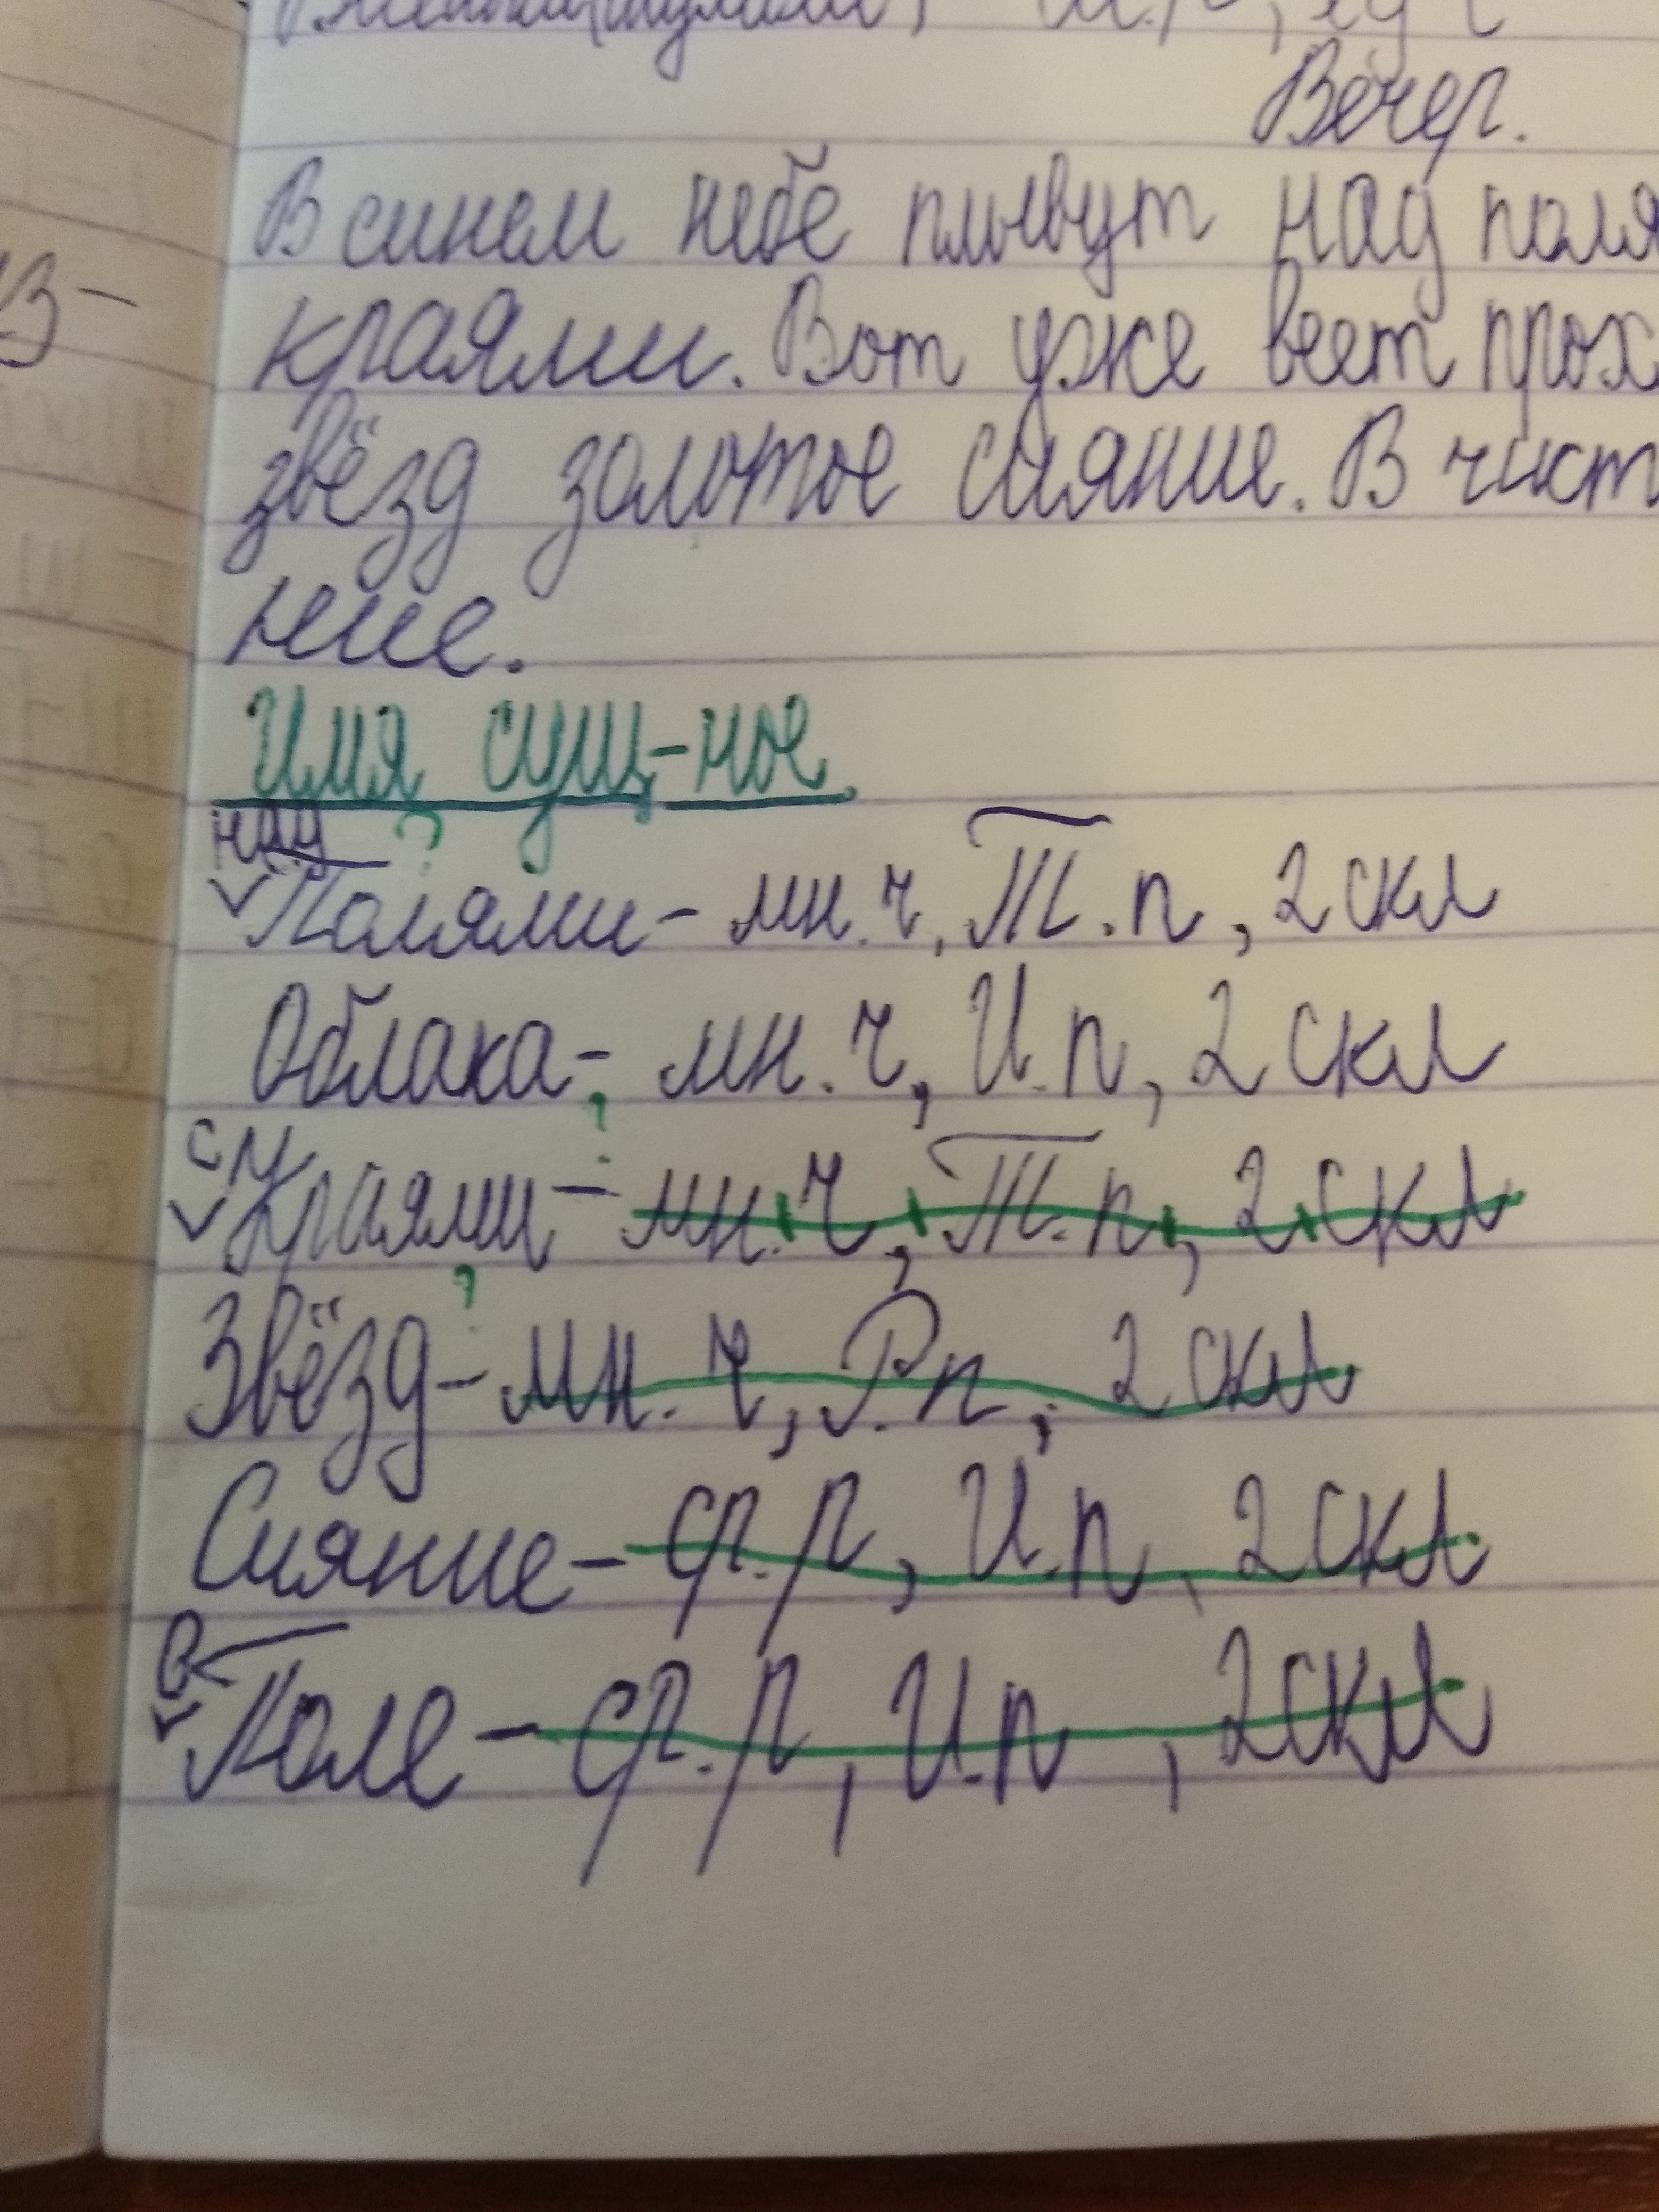 Вечер.
В синем небе плывут над поля
краями. Вот уже веет прох
звёзд золотое сияние. В чист
ние.
Имя сущ-ное.
над ?
Полями - мн.ч, Т.п, 2 скл
Облака - мн.ч, И.п, 2 скл
с ?
Краями - мн.ч, Т.п, 2 скл
?
Звёзд - мн.ч, Р.п, 2 скл
Сияние - ср.р, И.п, 2 скл
В
Поле - ср.р, И.п, 2 скл